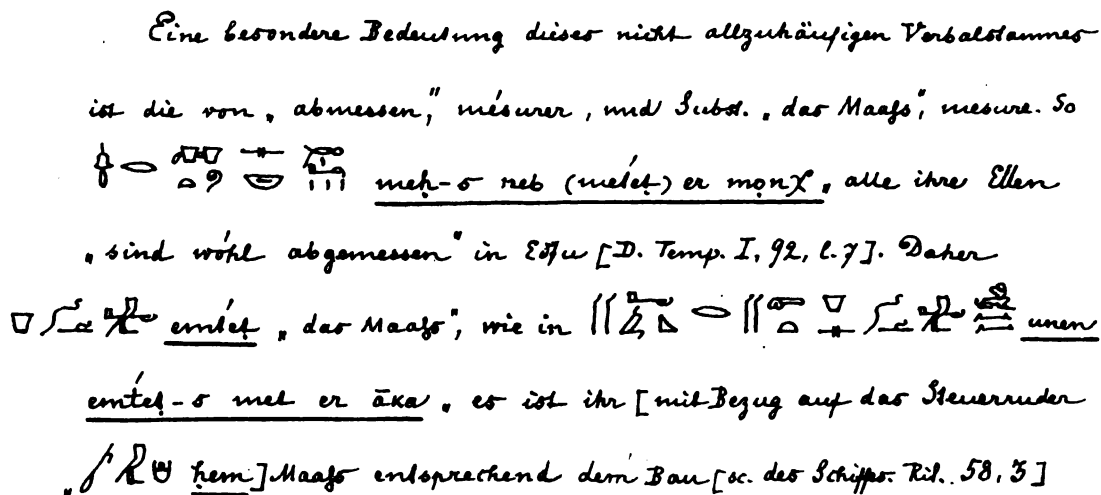 Eine besondere Bedeutung dieses nicht allzuhäufigen Verbalstammes
ist die von „abmessen,“ mésurer, und Subst. „das Maaſs“, mesure. So
meḥ-s neb (metet) er monχ „alle ihre Ellen
„sind wohl abgemessen“ in Edfu [D. Temp. I, 92, l. 7]. Daher
emtet „das Maaſs“, wie in unen
emtet-s met er āka „es ist ihr [mit Bezug auf das Steuerruder
ḥem] Maaſs entsprechend dem Bau [sc. des Schiffes. Rit. 58, 3]